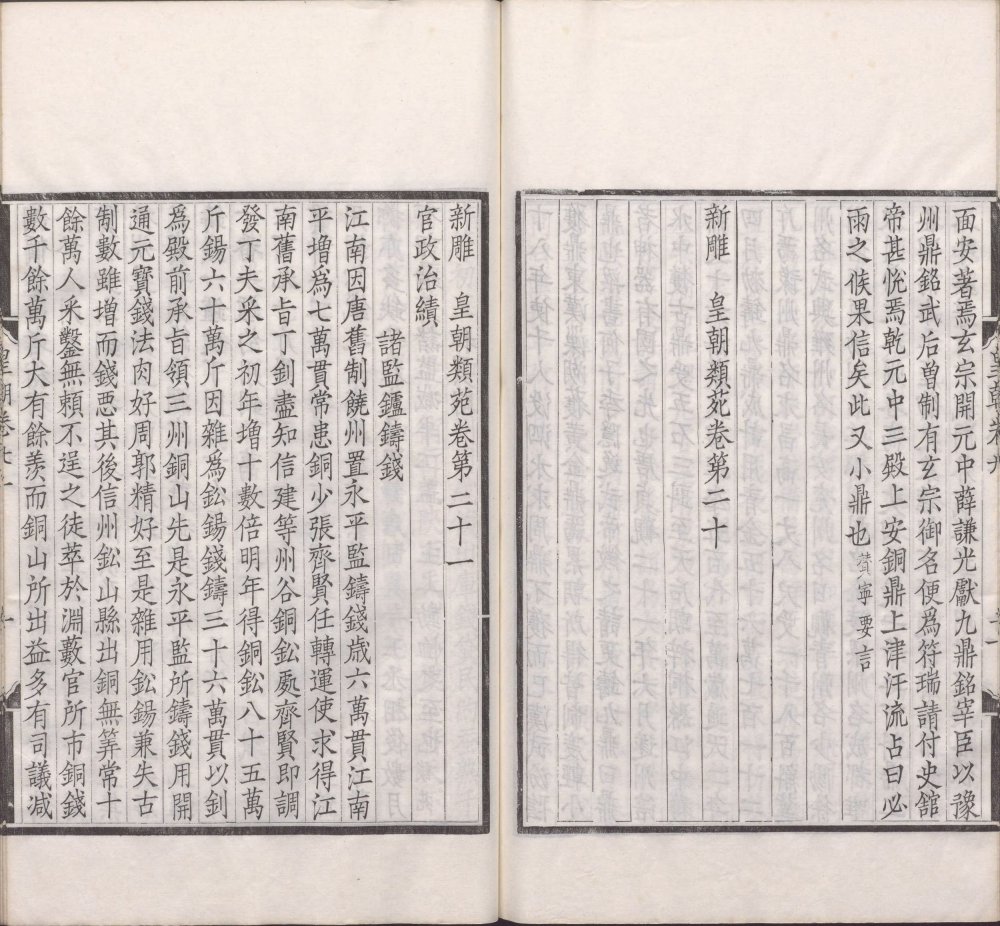 面安著焉玄宗開元中薛謙光獻九鼎銘宰臣以豫
州鼎銘武后曽制有玄宗御名便爲符瑞請付史舘
帝甚恱焉乾元中三殿上安銅鼎上津汗流占曰必
雨之候果信矣此又小鼎也 賛寧要言
新雕 皇朝類苑卷第二十
新雕 皇朝類苑卷第二十一
官政治績
諸監鑪鑄錢
江南因唐舊制饒州置永平監鑄錢歳六萬貫江南
平增爲七萬貫常患銅少張齊賢任轉運使求得江
南舊承旨丁釗盡知信建等州谷銅鈆處齊賢即調
發丁夫采之初年增十數倍明年得銅鈆八十五萬
斤錫六十萬斤因雜爲鈆錫錢鑄三十六萬貫以釗
爲殿前承旨領三州銅山先是永平監所鑄錢用開
通元寶錢法肉好周郭精好至是雜用鈆錫兼失古
制數雖增而錢惡其後信州鈆山縣出銅無筭常十
餘萬人采鑿無頼不逞之徒萃於淵藪官所市銅錢
數千餘萬斤大有餘羨而銅山所出益多有司議减